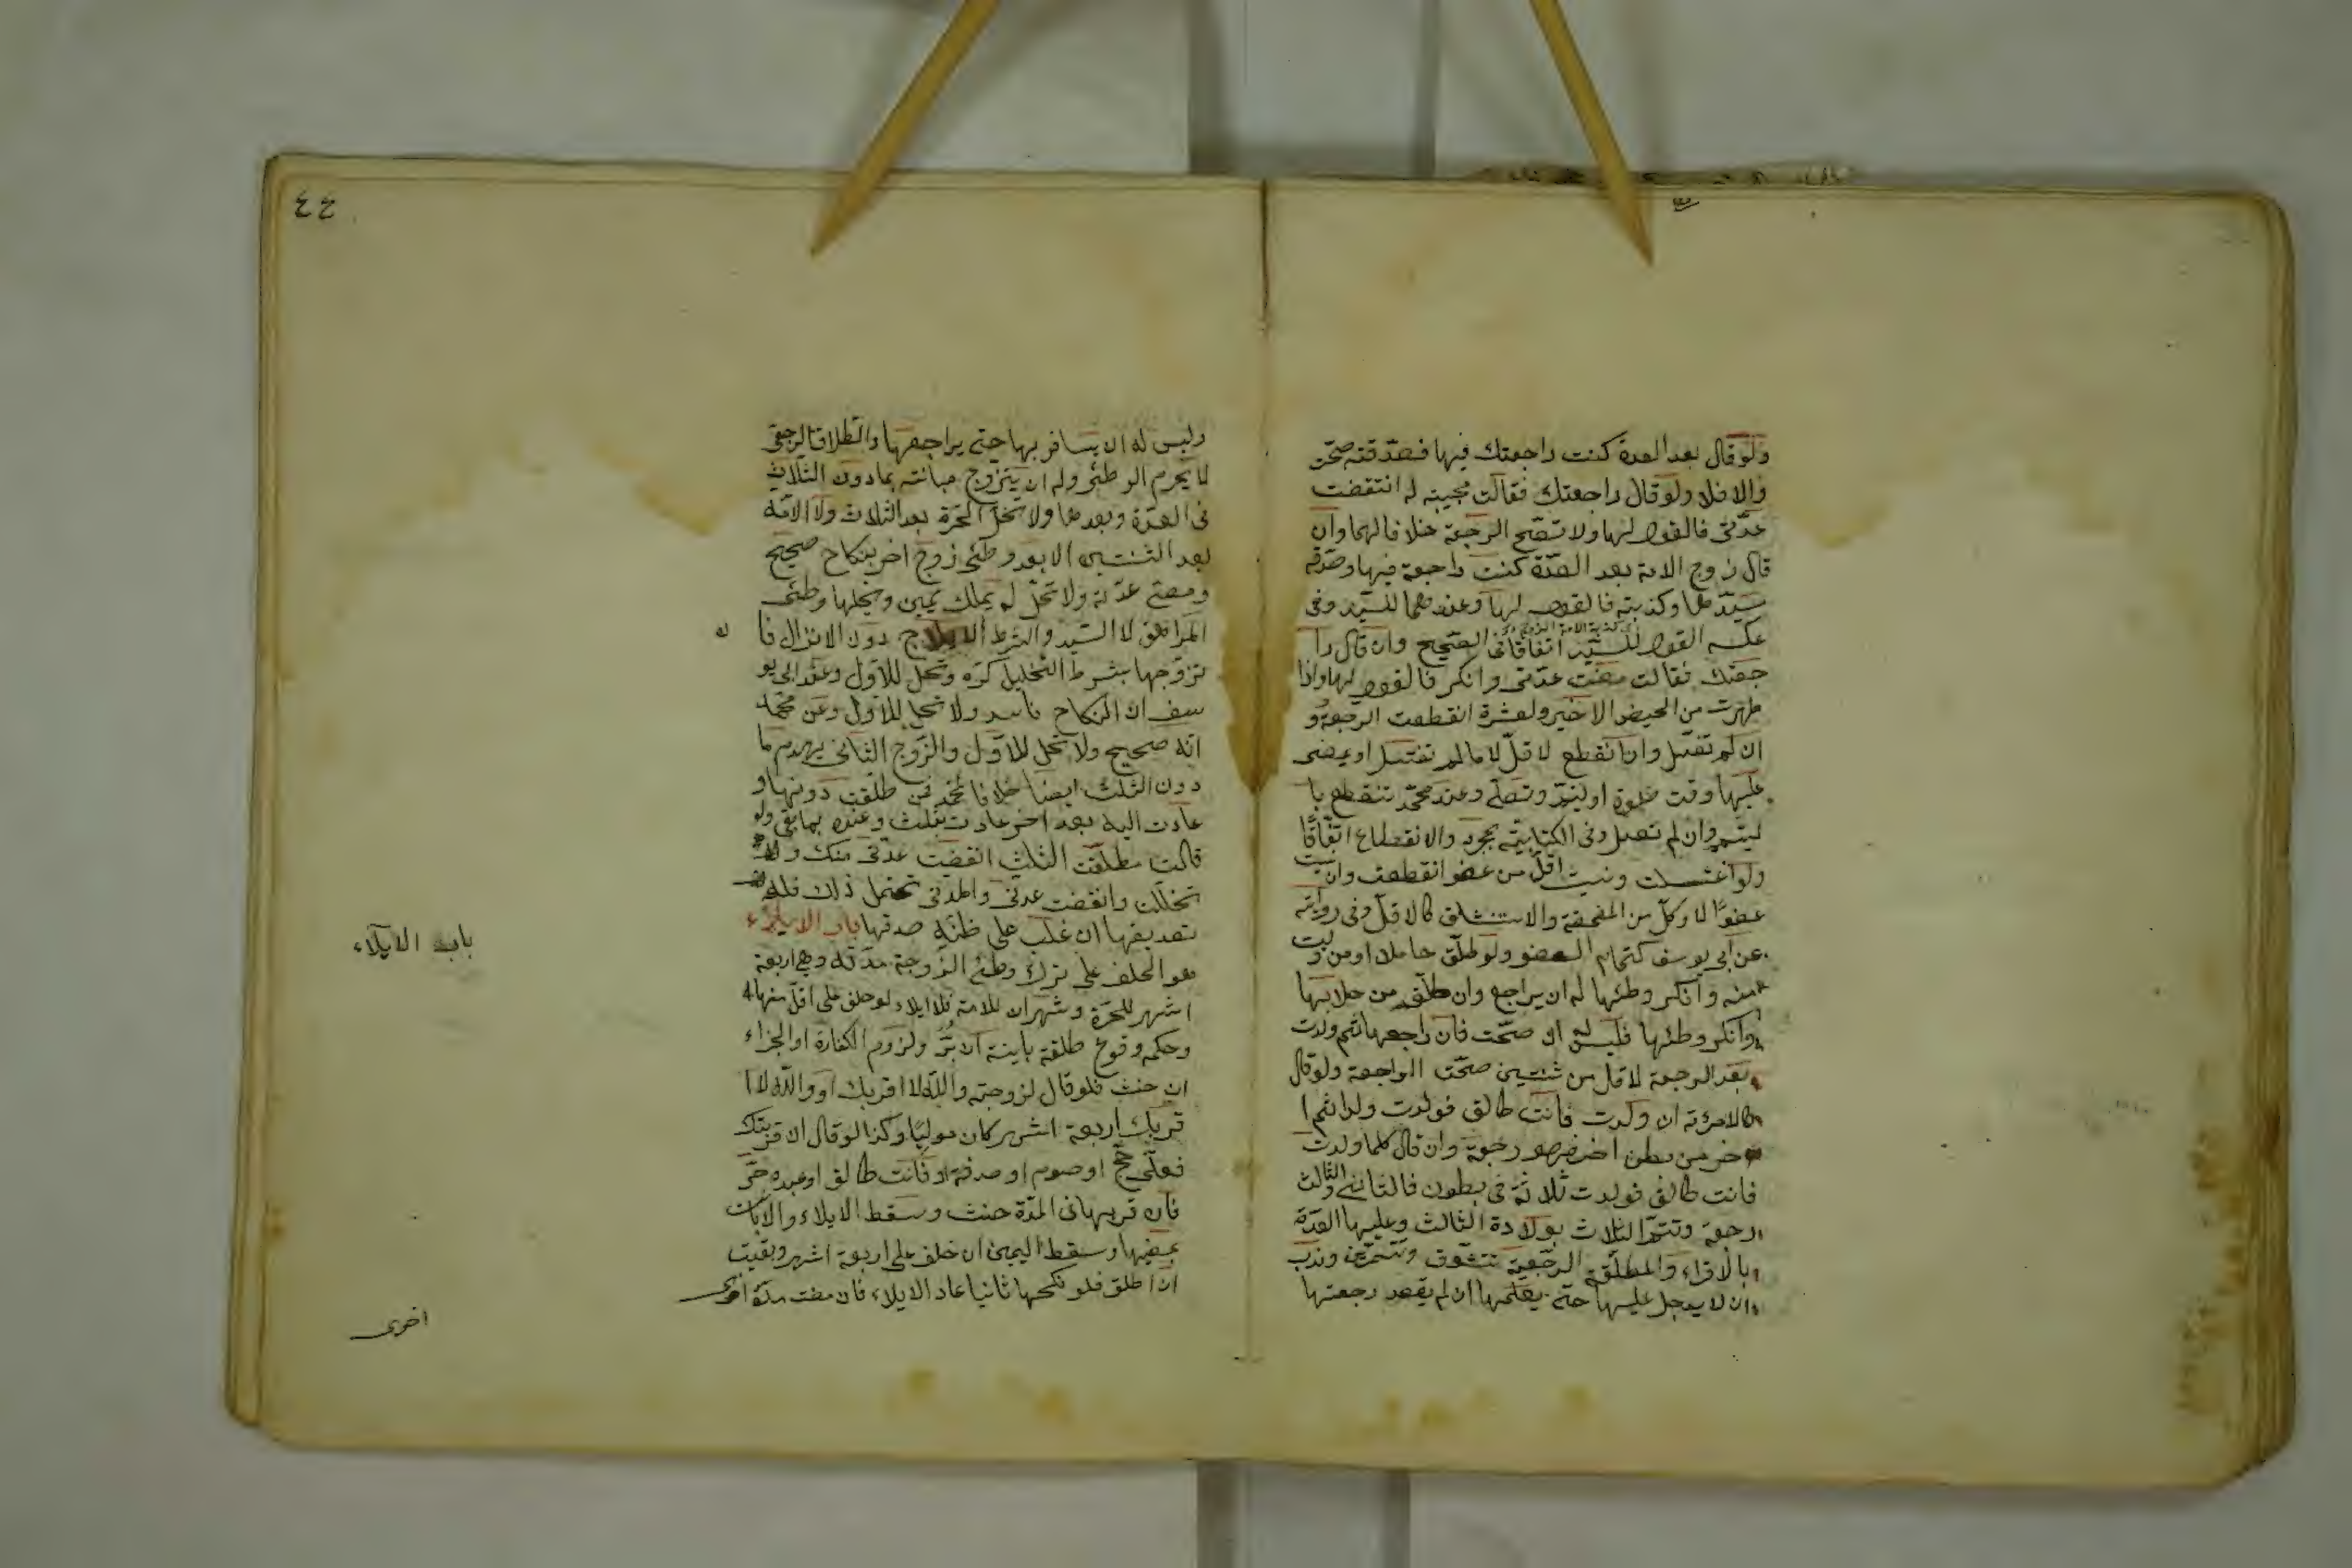 ولو قال بعد العدة كنت راجعتك فيها فصدقته صحت
والا فلا ولو قال راجعتك فقالت مجيبة له انقضت
عدتى فالقول لها ولا تصح الرجعة خلافا لهما وان
قال زوج الامة بعد العدة كنت راجعت فيها وصدقه
سيدها وكذبته فالقول لها وعندهما للسيد وفى
عكسه القول للسيد اتفاقا فى الصحيح وان قال را
جعتك فقالت مضت عدتى وانكر فالقول لها واذا
طهرت من الحيض الاخير لعشرة انقطعت الرجعة و
ان لم تغتسل وان انقطع لاقل لا ما لم تغتسل او يمضى
عليها وقت صلوة او تيمم وتصلى وعند محمد تنقطع با
لتيمم وان لم تصل وفى الكتابية بمجرد والانقطاع اتفاقا
ولو اغتسلت ونسيت اقل من عضو انقطعت وان نسيت
عضوا لا وكل من المضمضة والاستنشاق كالاقل وفى رواية
عن ابى يوسف كتمام العضو ولو طلق حاملا او من ولدت
منه وانكر وطئها له ان يراجع وان طلق من خلا بها
وانكر وطئها فليس له ان صحت فان راجعها ثم ولدت
بعد الرجعة لاقل من سنتين صحت الراجعة ولو قال
لامرئة ان ولدت فانت طالق فولدت ولدا ثم ا
خر من بطن اخر فهو رجعة وان قال كلما ولدت
فانت طالق فولدت ثلاثة فى بطون فالثانى والثالث
رجعة وتتم الثلاث بولادة الثالث وعليها العدة
بالاقراء والمطلقة الرجعية تتشوق وتتزين وندب
ان لا يدخل عليها حتى يعلمها ان لم يقصد رجعتها
٤٤
وليس له ان يسافر بها حتى يراجعها والطلاق الرجعى
لا يحرم الوطئ وله ان يتزوج مبانته بما دون الثلاث
فى العدة وبعدها ولا تحل الحرة بعد الثلاث ولا الامة
بعد الثنتين الا بعد وطئ زوج اخر بنكاح صحيح
ومضى عدته ولا تحل له بملك يمين ويحلها وطئ
المراهق لا السيد والشرط الايلاج دون الانزال فا
تزوجها بشرط التحليل كره وتحل للاول وعند ابى يو
سف ان النكاح فاسد ولا تحل للاول وعن محمد
انه صحيح ولا تحل للاول والزوج الثانى يهدم ما
دون الثلث ايضا خلافا لمحمد فمن طلقت دونها و
عادت اليه بعد اخر عادت بثلث وعنده بما بقى ولو
قالت مطلقة الثلث انقضت عدتى منك و
تحللت وانقضت عدتى والمدة تحتمل ذلك فله
تصديقها ان غلب على ظنه صدقها باب الايلاء
هو الحلف على ترك وطئ الزوجة مدته وهى اربعة
اشهر للحرة وشهران للامة فلا ايلاء لو حلف على اقل منها
وحكمه وقوع طلقة باينة ان بر ولزوم الكفارة او الجزاء
ان حنث فلو قال لزوجته والله لا اقربك او والله لا ا
قربك اربعة اشهر كان موليا وكذا لو قال ان قربتك
فعلى حج او صوم او صدقة او فانت طالق او عبده حر
فان قربها فى المدة حنث وسقط الايلاء والا بانت
بمضيها وسقط اليمين ان حلف على اربعة اشهر وبقيت
ان اطلق فلو نكحها ثانيا عاد الايلاء فان مضت مدة اخرى
باب الايلاء
اخرى